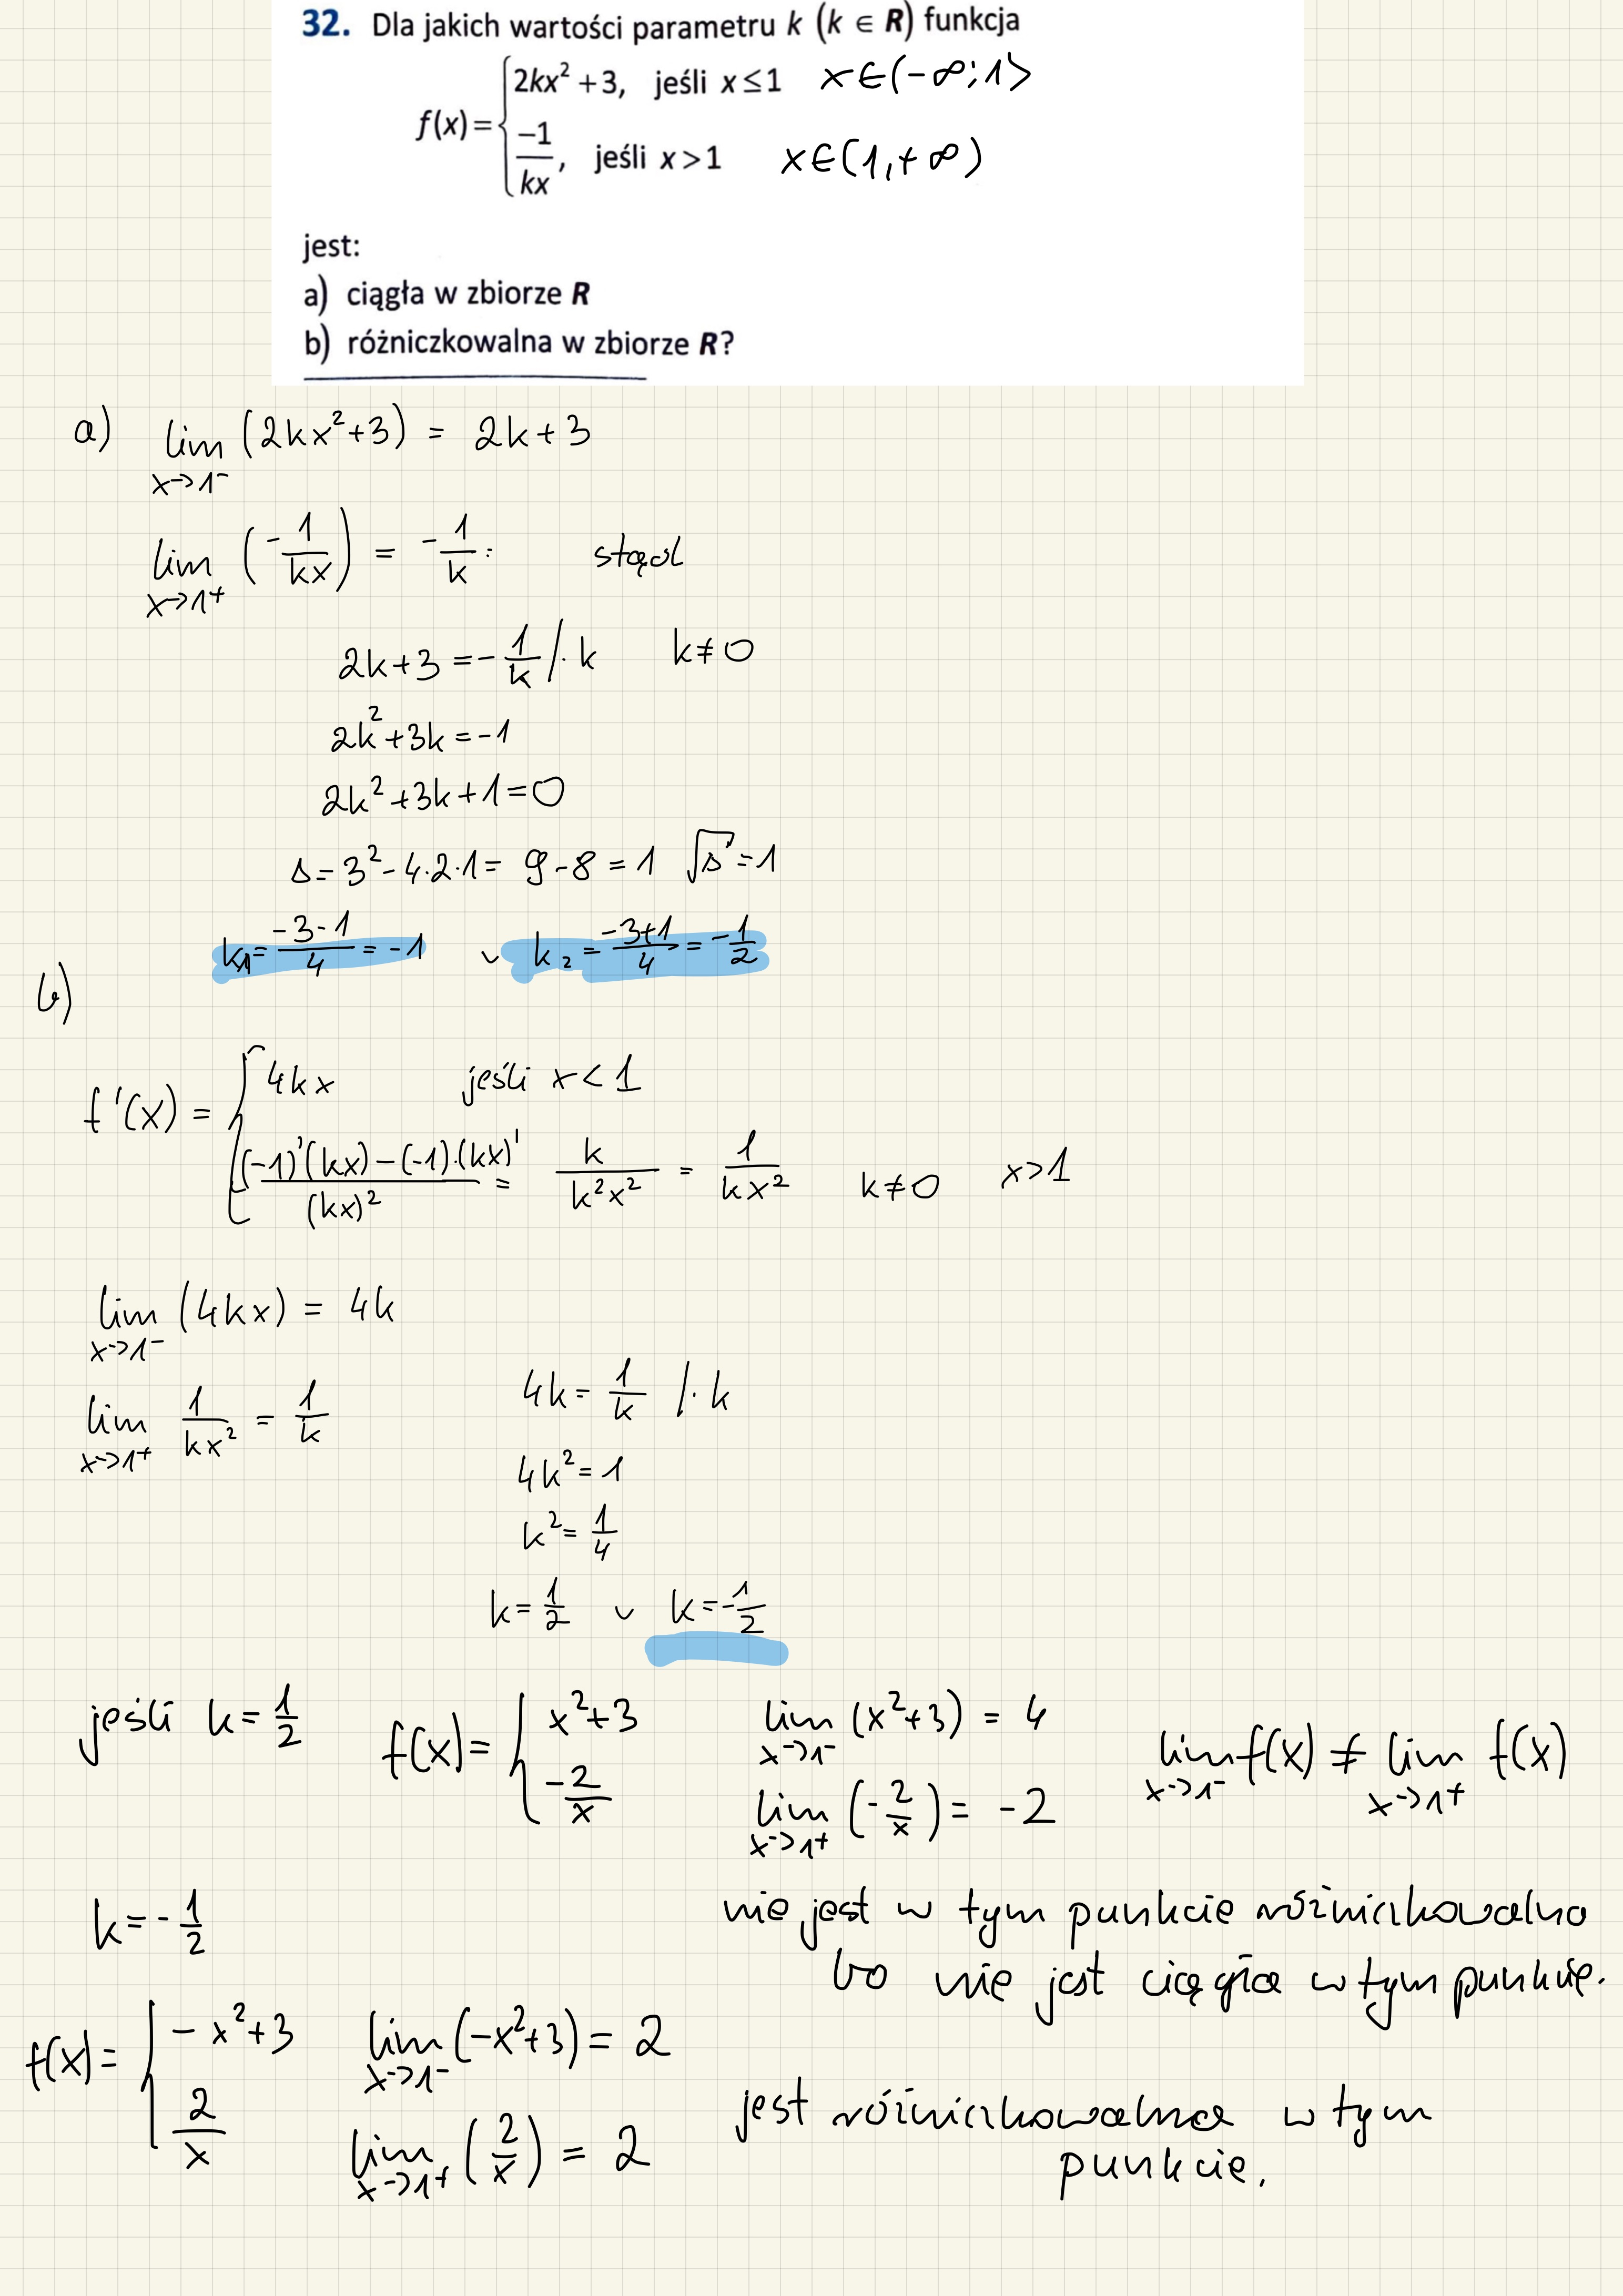 32. Dla jakich wartości parametru k (k ∈ R) funkcja
f(x) = { 2kx² + 3, jeśli x ≤ 1 x∈(-∞;1>
-1/kx, jeśli x > 1 x∈(1,+∞)
jest:
a) ciągła w zbiorze R
b) różniczkowalna w zbiorze R?
a) lim x→1⁻ (2kx²+3) = 2k+3
lim x→1⁺ (-1/kx) = -1/k : stąd
2k+3 = -1/k /·k k≠0
2k²+3k = -1
2k²+3k+1=0
Δ = 3²-4·2·1 = 9-8 = 1 √Δ = 1
k₁ = (-3-1)/4 = -1 ∨ k₂ = (-3+1)/4 = -1/2
b)
f'(x) = { 4kx jeśli x < 1
((-1)'(kx)-(-1)·(kx)')/(kx)² = k/k²x² = 1/kx² k≠0 x>1
lim x→1⁻ (4kx) = 4k
lim x→1⁺ 1/kx² = 1/k 4k = 1/k /·k
4k² = 1
k² = 1/4
k = 1/2 ∨ k = -1/2
jeśli k = 1/2 f(x) = { x²+3 lim x→1⁻ (x²+3) = 4 lim x→1⁻ f(x) ≠ lim x→1⁺ f(x)
-2/x lim x→1⁺ (-2/x) = -2
k = -1/2 nie jest w tym punkcie różniczkowalna
bo nie jest ciągła w tym punkcie.
f(x) = { -x²+3 lim x→1⁻ (-x²+3) = 2
2/x lim x→1⁺ (2/x) = 2 jest różniczkowalna w tym
punkcie.